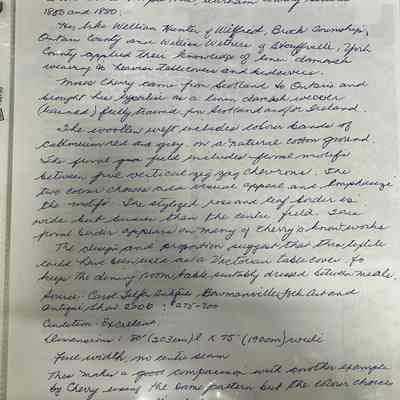 1850 and 1880.
He, like William Hunter of Wilfrid, Brock Township,
Ontario County and William Withers of Stouffville, York
County applied their knowledge of linen damask
weaving to heavier tablecovers and bedcovers.
Moses Cherry came from Scotland to Ontario and
brought his expertise as a linen damask weaver
(learned) fully trained in Scotland and/or Ireland.
The woollen weft includes colour bands of
red and grey on a natural cotton ground.
The field includes motifs
between five vertical zig zag chevrons. The
two colour choices add visual appeal and emphasize
the motifs. The stylized rose and leaf border is
wide but than the centre field. This
floral border appears on many of Cherry's known works
The design and proportion suggest that this textile
could have been used as a Victorian tablecover to
keep the dining room table suitably dressed between meals.
Source: Carol Telfer Antiques, Bowmanville Folk Art and
Antique Show 2006: 275-
Condition: Excellent
Dimensions: 80" (203cm) l x 75" (190cm) wide
Full width no centre seam
This makes a good comparison with another example
by Cherry using the same pattern but the colour choices